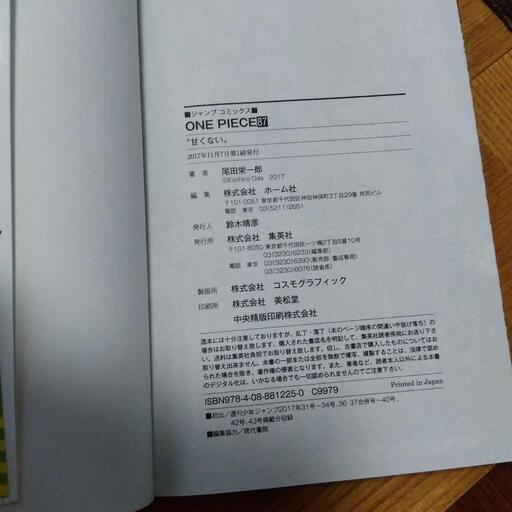 ■ジャンプ コミックス■
ONE PIECE 87
"甘くない。
2017年11月7日第1刷発行
著者 尾田栄一郎
©Eiichiro Oda 2017
編集 株式会社 ホーム社
〒101-0051 東京都千代田区神田神保町3丁目29番 共同ビル
電話 東京 03(5211)2651
発行人 鈴木晴彦
発行所 株式会社 集英社
〒101-8050 東京都千代田区一ツ橋2丁目5番10号
03(3230)6233(編集部)
電話 東京 03(3230)6393(販売部・書店専用)
03(3230)6076(読者係)
製版所 株式会社 コスモグラフィック
印刷所 株式会社 美松堂
中央精版印刷株式会社
造本には十分注意しておりますが、乱丁・落丁(本のページ順序の間違いや抜け落ち)の
場合はお取り替え致します。購入された書店名を明記して、集英社読者係宛にお送り下さ
い。送料は集英社負担でお取り替え致します。但し、古書店で購入したものについてはお
取り替え出来ません。本書の一部または全部を無断で複写、複製することは、法律で認め
られた場合を除き、著作権の侵害となります。また、業者など、読者本人以外による本書
のデジタル化は、いかなる場合でも一切認められませんのでご注意下さい。
ISBN978-4-08-881225-0 C9979 Printed in Japan
■初出/週刊少年ジャンプ2017年31号〜34号、36・37合併号〜40号、
42号、43号掲載分収録
■編集協力/現代書院